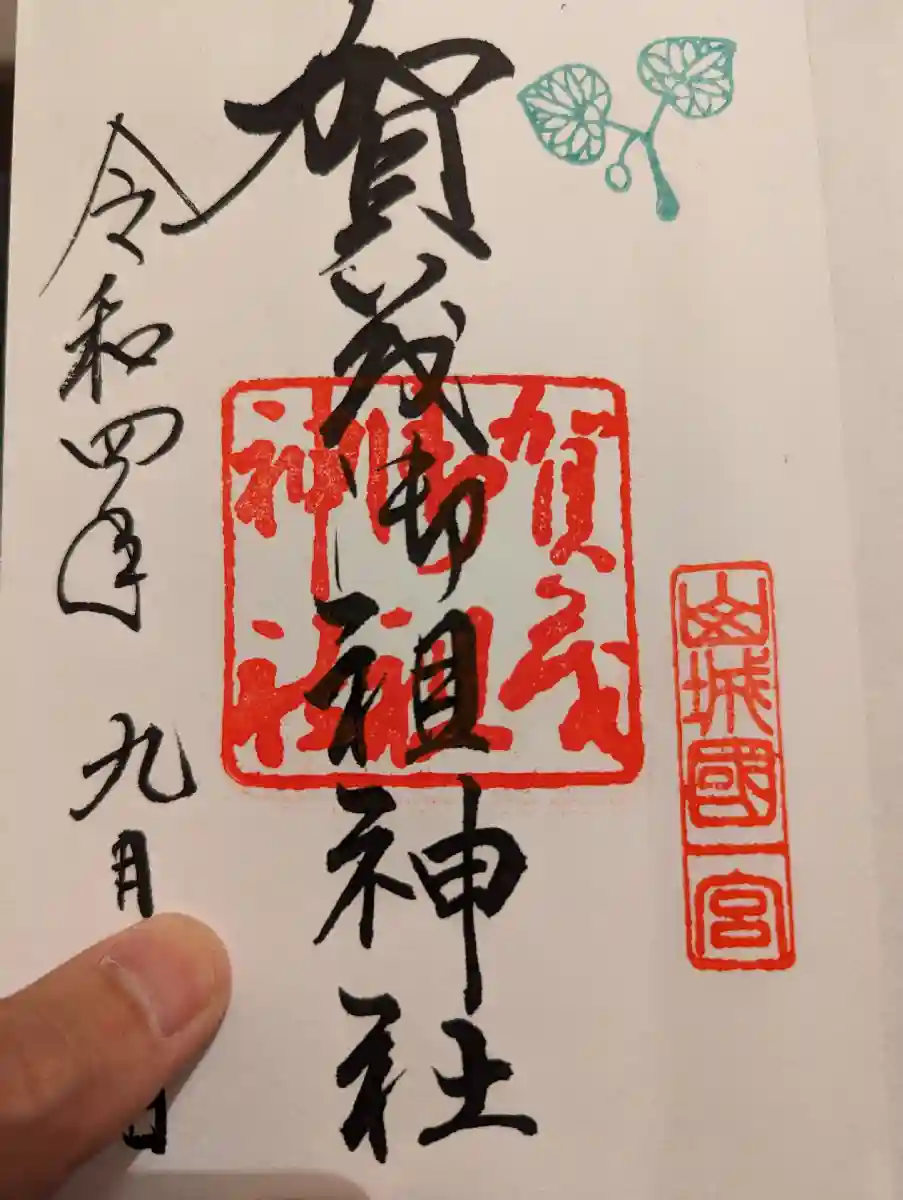 山城國一宮
賀茂御祖神社
賀茂
御祖
神社
令和四年九月 日